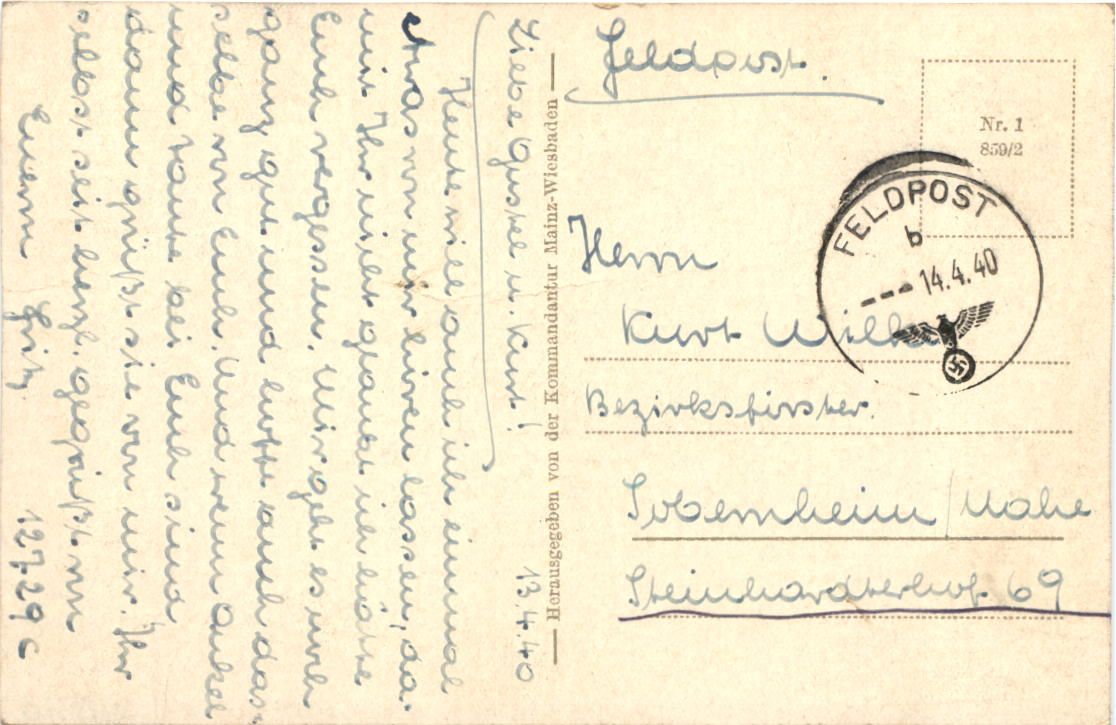 13.4.40
Liebe Gustel u. Kurt!
Heute will auch ich einmal
etwas von mir hören lassen, da-
mit Ihr nicht glaubt ich hätte
Euch vergessen. Mir geht es noch
ganz gut und hoffe auch das-
selbe von Euch. Und wenn Onkel
und Tante bei Euch sind
dann grüßt sie von mir. Ihr
selbst seit herzl. gegrüßt von
Euern Fritz
12729 C
Herausgegeben von der Kommandantur Mainz-Wiesbaden
Feldpost.
Nr. 1
859/2
FELDPOST
b
--- 14.4.40
Herrn
Kurt
Bezirksförster.
Sobernheim / Nahe
Steinhardterhof 69